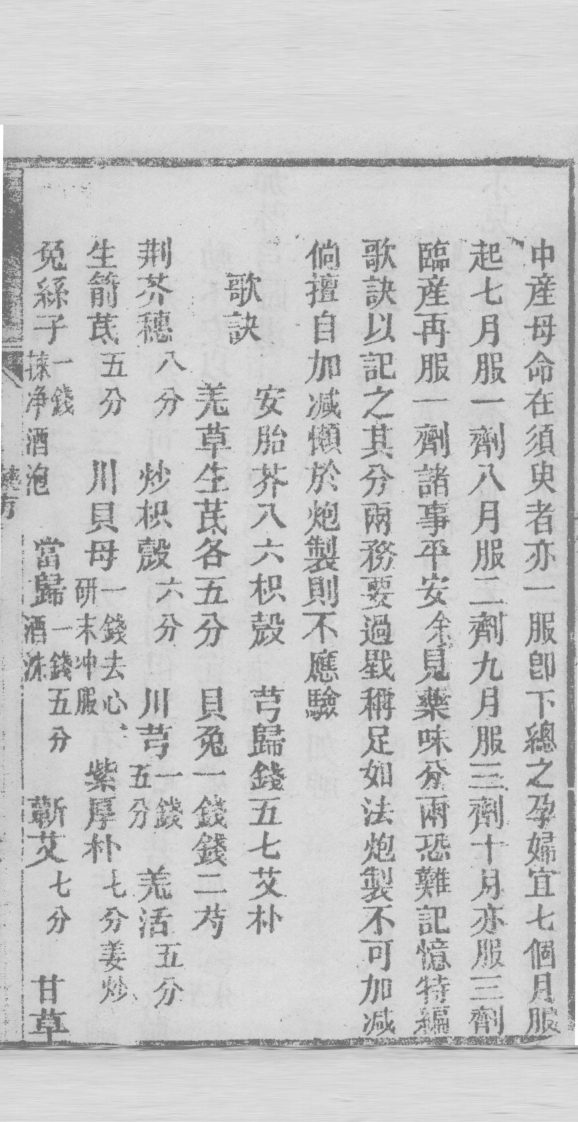 中產母命在須臾者亦一服卽下總之孕婦宜七個月服
起七月服一劑八月服二劑九月服三劑十月亦服三劑
臨產再服一劑諸事平安余見藥味分兩恐難記憶特編
歌訣以記之其分兩務要過戥稱足如法炮製不可加减
倘擅自加减懶於炮製則不應驗
歌訣
安胎芥八六枳殼 芎歸錢五七艾朴
羌草生芪各五分 貝兔一錢錢二芍
荆芥穗八分 炒枳殼六分 川芎一錢五分 羌活五分
生箭芪五分 川貝母一錢去心研末冲服 紫厚朴七分姜炒
兔絲子一錢揀净酒泡 當歸一錢五分酒洗 蘄艾七分 甘草